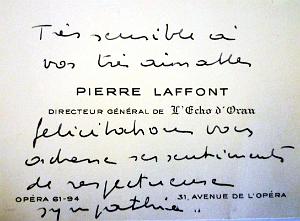 Très sensible à
vos très aimables
PIERRE LAFFONT
DIRECTEUR GÉNÉRAL DE L'Echo d'Oran
félicitations vous
adresse ses sentiments
de respectueuse
OPÉRA 61-94 31, AVENUE DE L'OPÉRA
sympathie